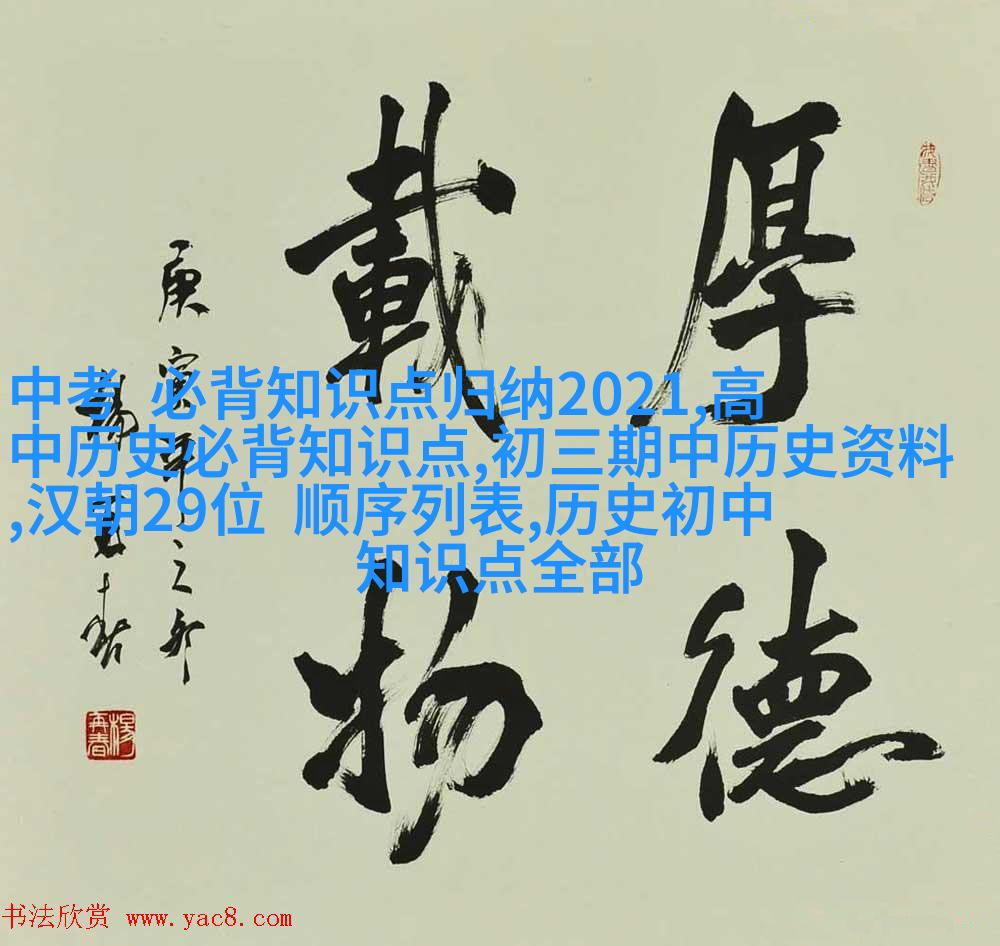 厚德
載物
庚寅年之新
楊再春
楊再春
中考 必背知识点归纳2021,高
中历史必背知识点,初三期中历史资料
,汉朝29位 顺序列表,历史初中
知识点全部
书法欣赏 www.yac8.com